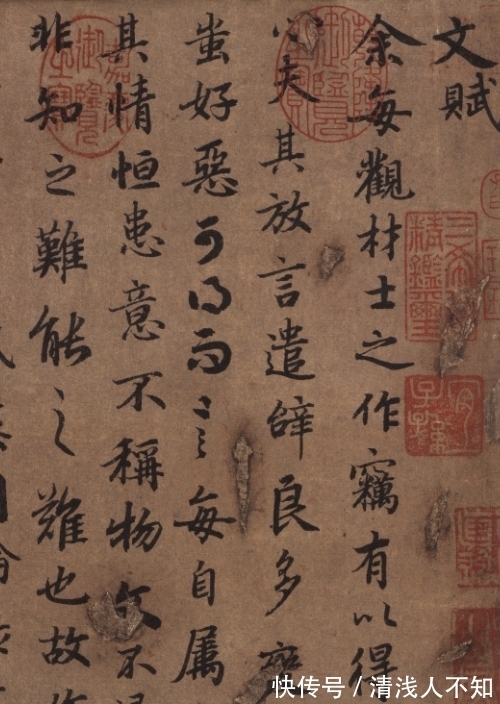 文賦
余每觀材士之作竊有以得
心夫其放言遣辭良多變
蚩好惡可得而言每自属
其情恒患意不稱物文不
非知之難能之難也故
三希堂精鑑璽
宜子孫
快传号 / 清浅人不知